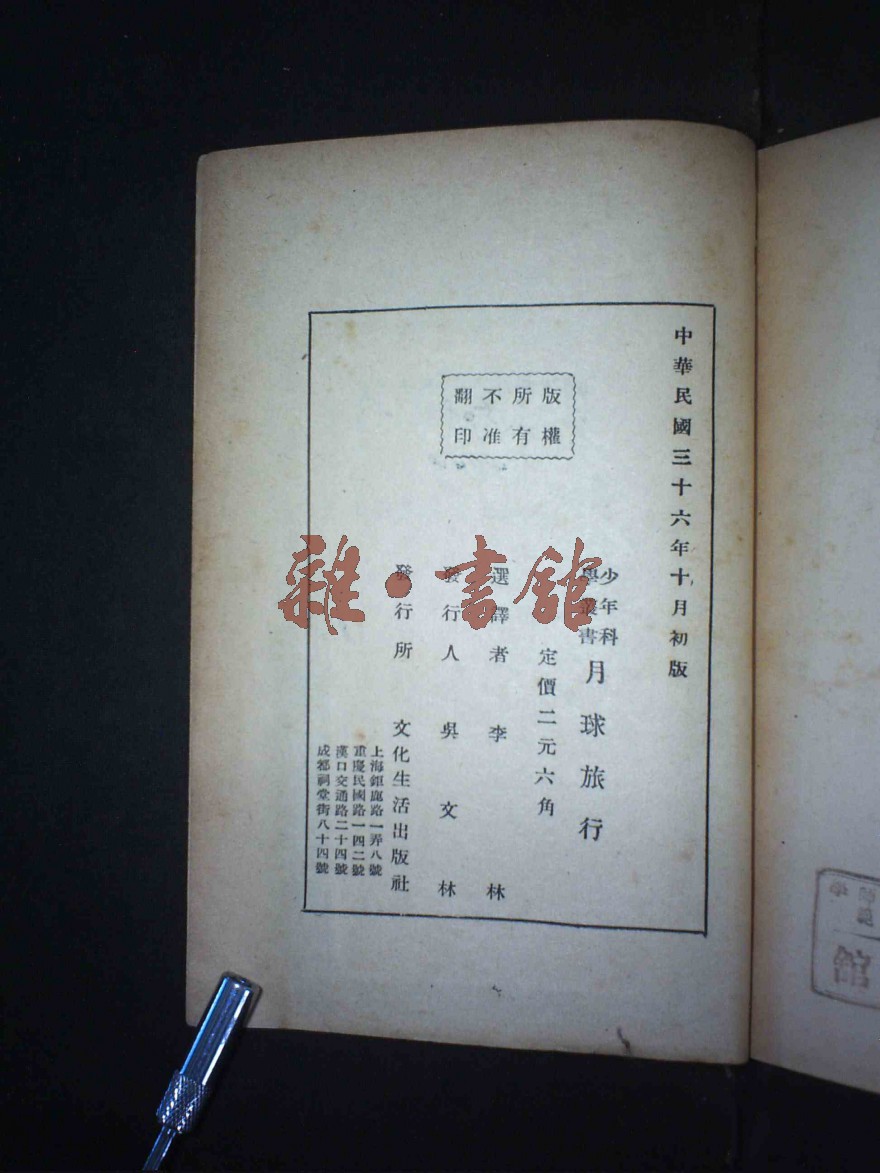 中華民國三十六年十月初版
版權
所有
不准
翻印
少年科
學叢書
月球旅行
定價二元六角
選譯者 李林
發行人 吳文林
發行所 文化生活出版社
上海鉅鹿路一弄八號
重慶民國路一四二號
漢口交通路二十四號
成都祠堂街八十四號
雜·書館
師範
學
館